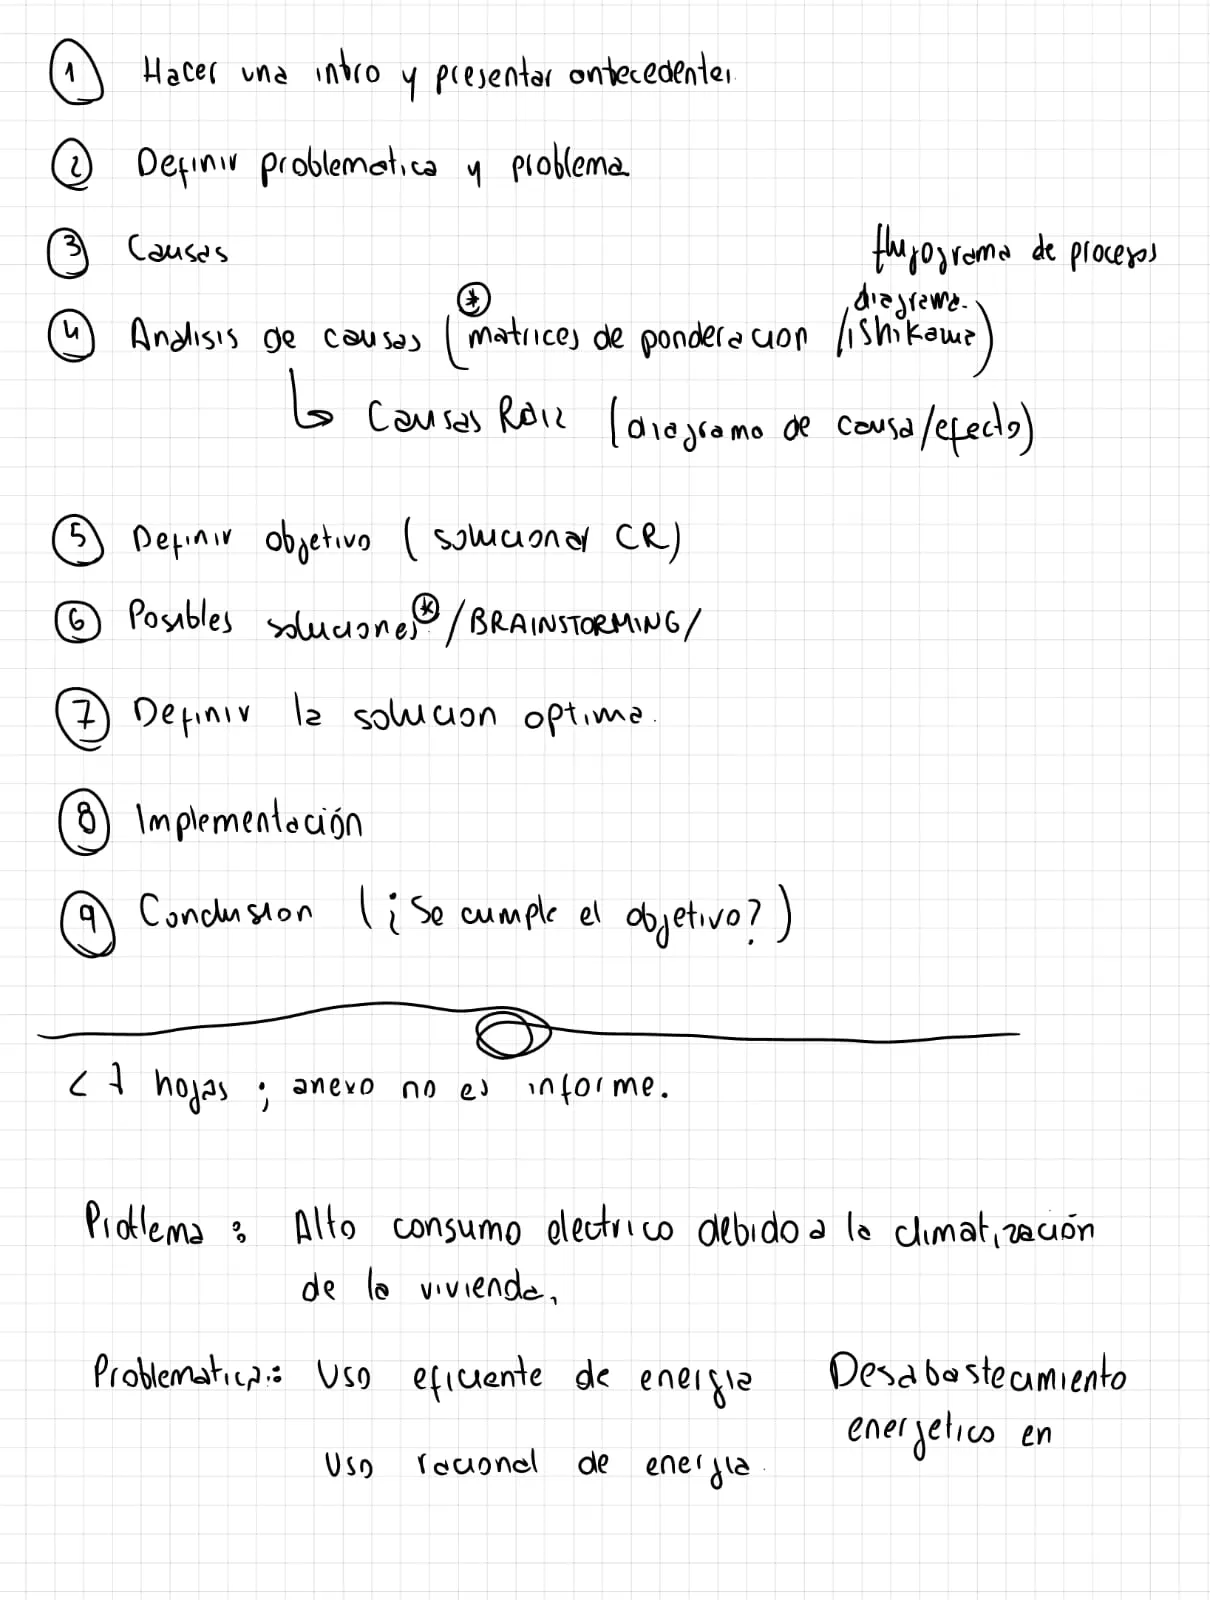 1 Hacer una intro y presentar antecedentes.
2 Definir problematica y problema
3 Causas
flujograma de procesos
diagrama.
4 Analisis de causas (matrices de ponderacion / ishikawa)
↳ Causas Raiz (diagrama de causa/efecto)
5 Definir objetivo (solucionar CR)
6 Posibles soluciones * /BRAINSTORMING/
7 Definir la solucion optima.
8 Implementación
9 Conclusion (¿Se cumple el objetivo?)
< 7 hojas ; anexo no es informe.
Problema : Alto consumo electrico debido a la climatización
de la vivienda,
Problematica: Uso eficiente de energia Desabastecimiento
energetico en
Uso racional de energia.